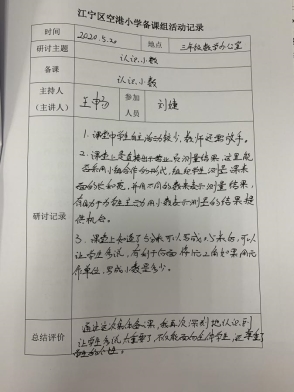 江宁区空港小学备课组活动记录
时间 2020.5.20 地点 三年级数学办公室
研讨主题 认识小数
备课 认识小数
主持人 王 参加 刘婕
(主讲人) 人员
研讨记录
1.课堂中学生自主活动较少,教师还要放手。
2.课堂上是直接出示课桌面测量结果,这里能
否采用小组合作的形式,组织学生测量课桌
面的长和宽,并用不同的数来表示测量结果,
有助于为学生主动用小数表示测量的结果提
供机会。
3.课堂上知道了5分米可以写成0.5米后,可以
让学生多说,有利于后面 如果用元
作单位,写成小数是多少。
总结评价
通过这次集体备课,我再次深刻地认识到
让学生多说太重要了,